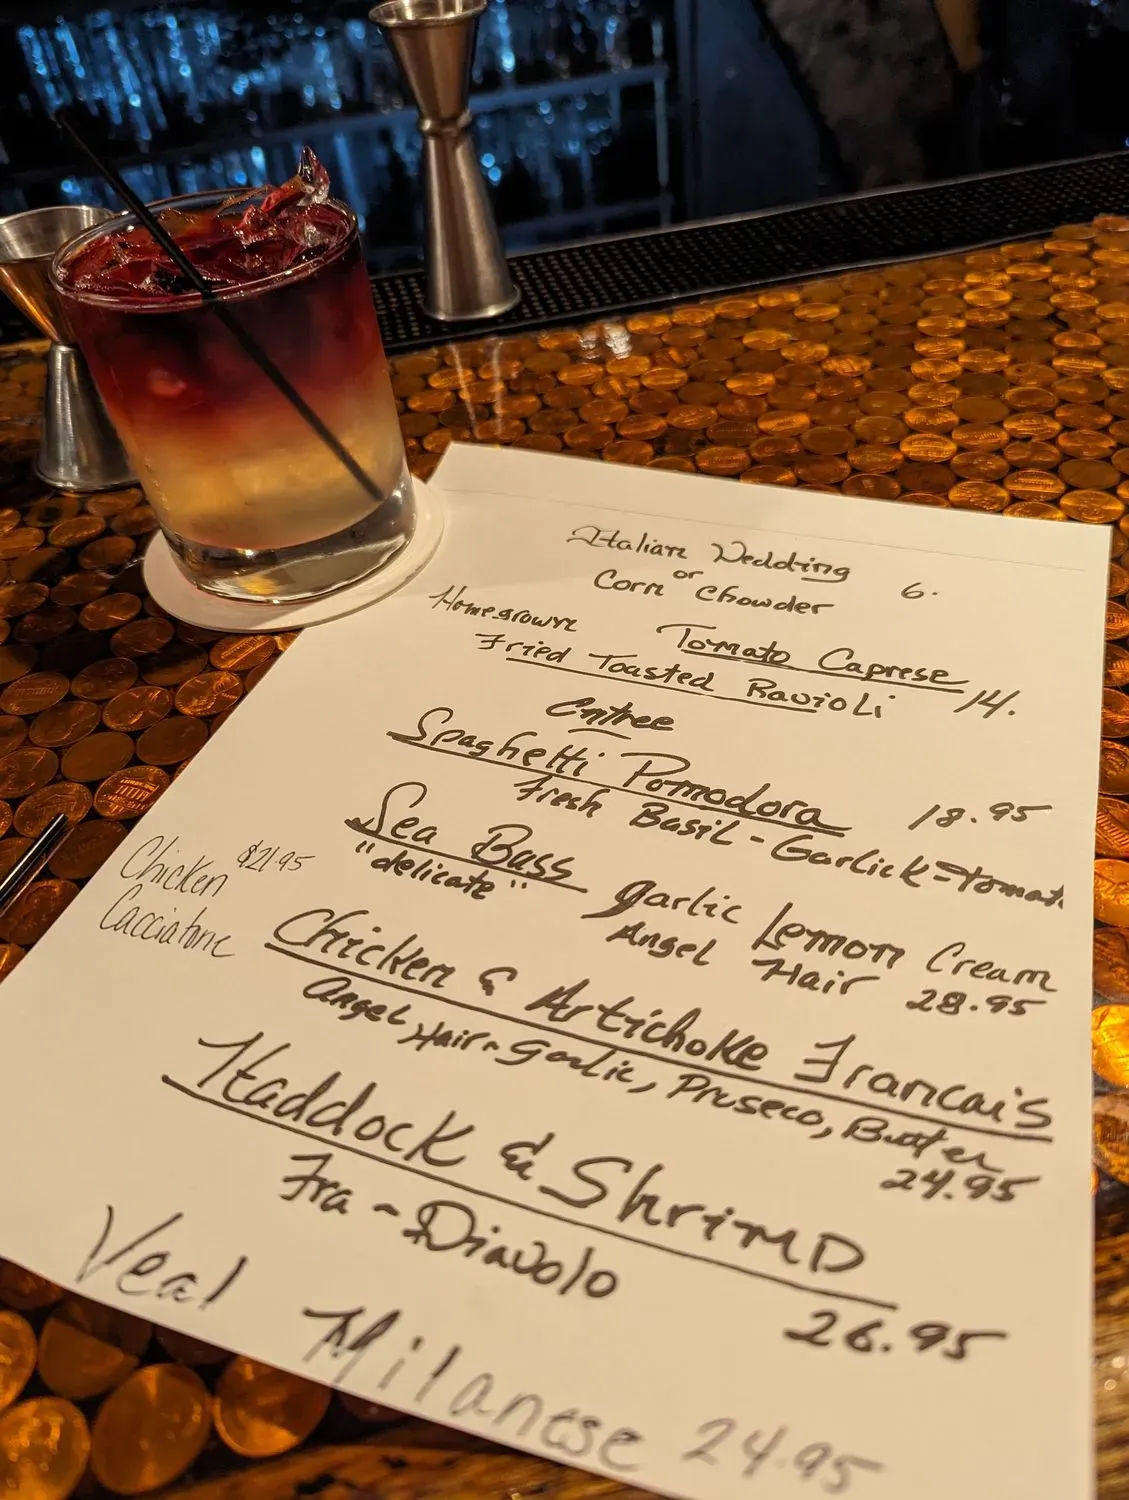 Italian Wedding
or 6.
Corn Chowder
Homegrown Tomato Caprese
Fried Toasted Ravioli 14.
Entree
Spaghetti Pomodora 18.95
Fresh Basil-Garlick-Tomat
Sea Bass garlic Lemon Cream
"delicate" Angel Hair 28.95
Chicken $21.95
Cacciatore
Chicken & Artichoke Francais
Angel Hair-Garlic, Pruseco, Butter
24.95
Haddock & Shrimp
Fra-Diavolo
26.95
Veal Milanese 24.95